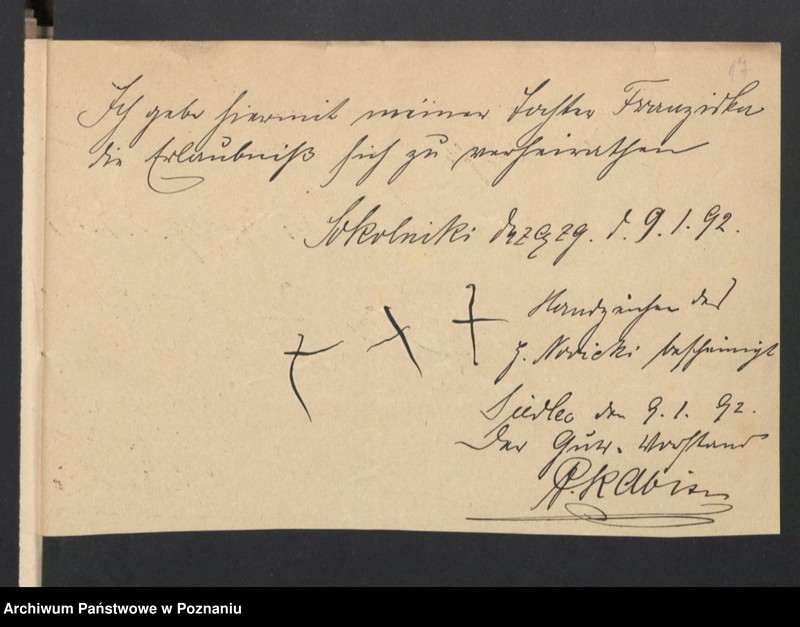 17
Ich gebe hiermit meiner Tochter Franziska
die Erlaubniß sich zu verheirathen
Sokolniki d. 9.1.92.
Handzeichen des
J. Nowicki bescheinigt
Siedlec den 9.1.92.
Der Guts-Vorstand
Archiwum Państwowe w Poznaniu